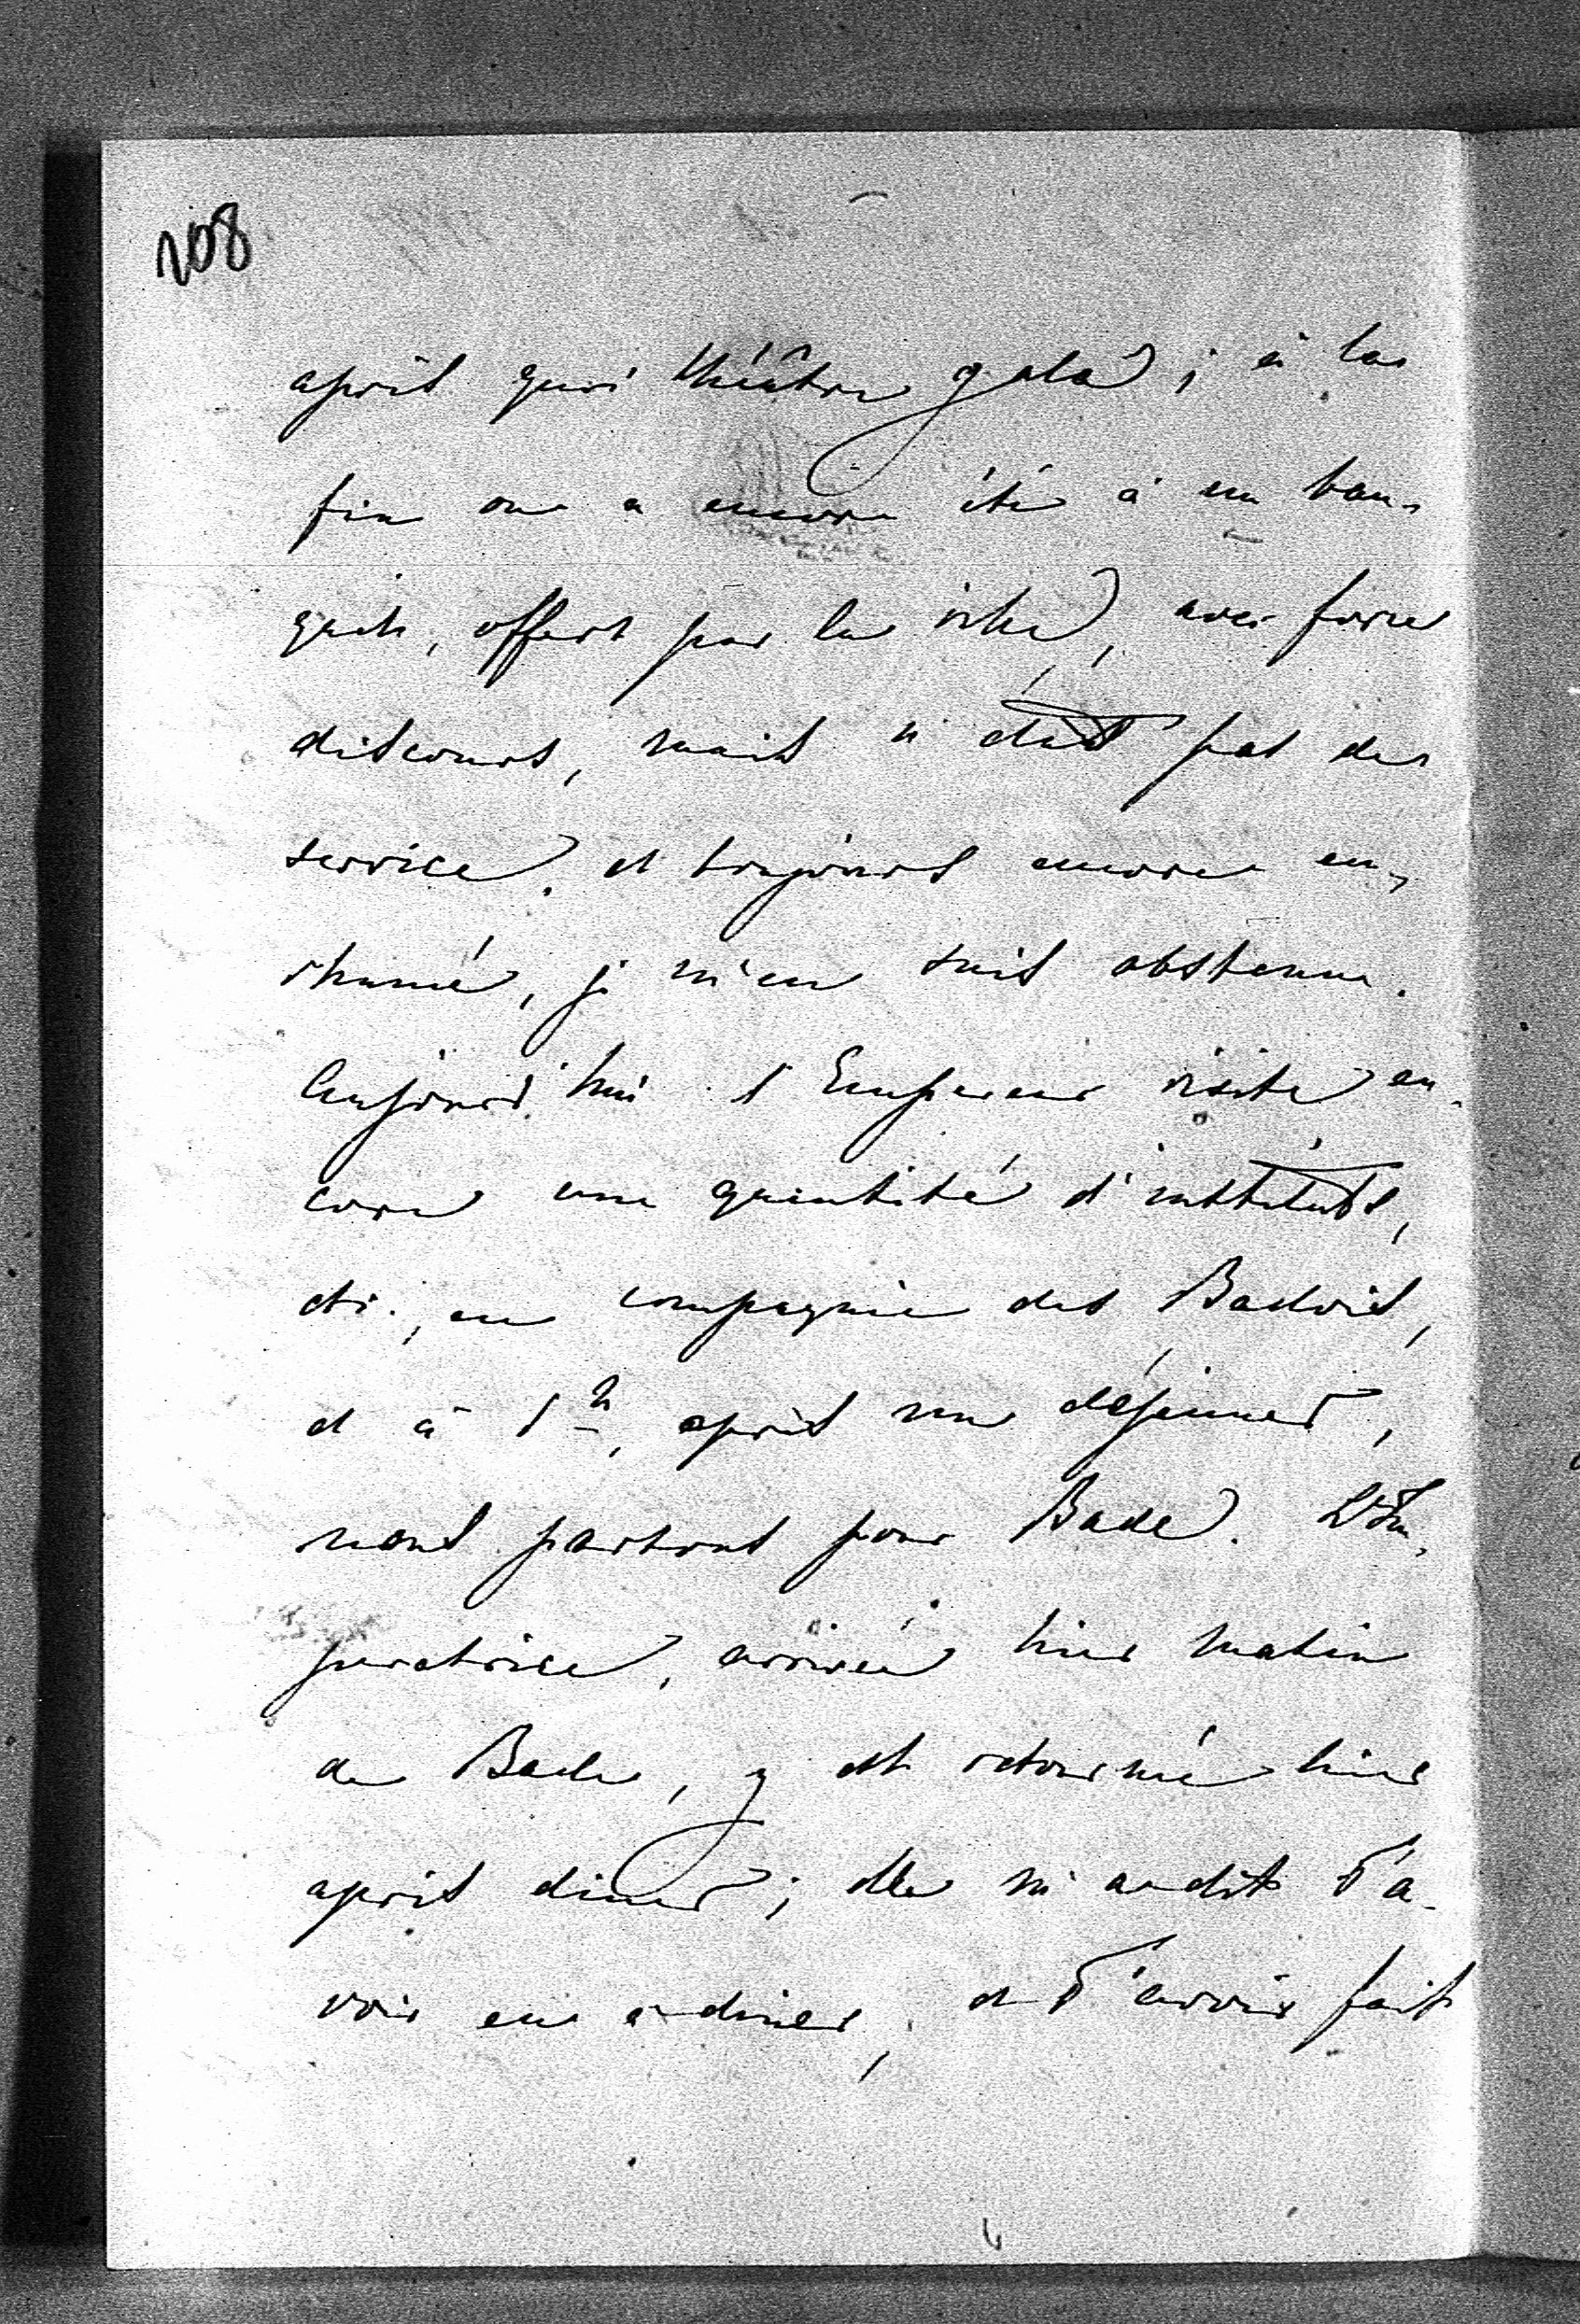 108
après quoi théâtre gala ; à la
fin on a encore été à un ban-
quet, offert par la ville, avec force
discours, mais n'étant pas de
service, et toujours encore en-
rhumé, je m'en suis abstenu.
Aujourd'hui l'Empereur visite en-
core une quantité d'instituts,
etc., en compagnie des Badois,
et à 1 h, après un déjeuner,
nous partons pour Bade. L'Im-
pératrice, arrivée hier matin
de Bade, y est retournée hier
après diner ; elle m'a dit t'a-
voir eu à diner, et t'avoir fait